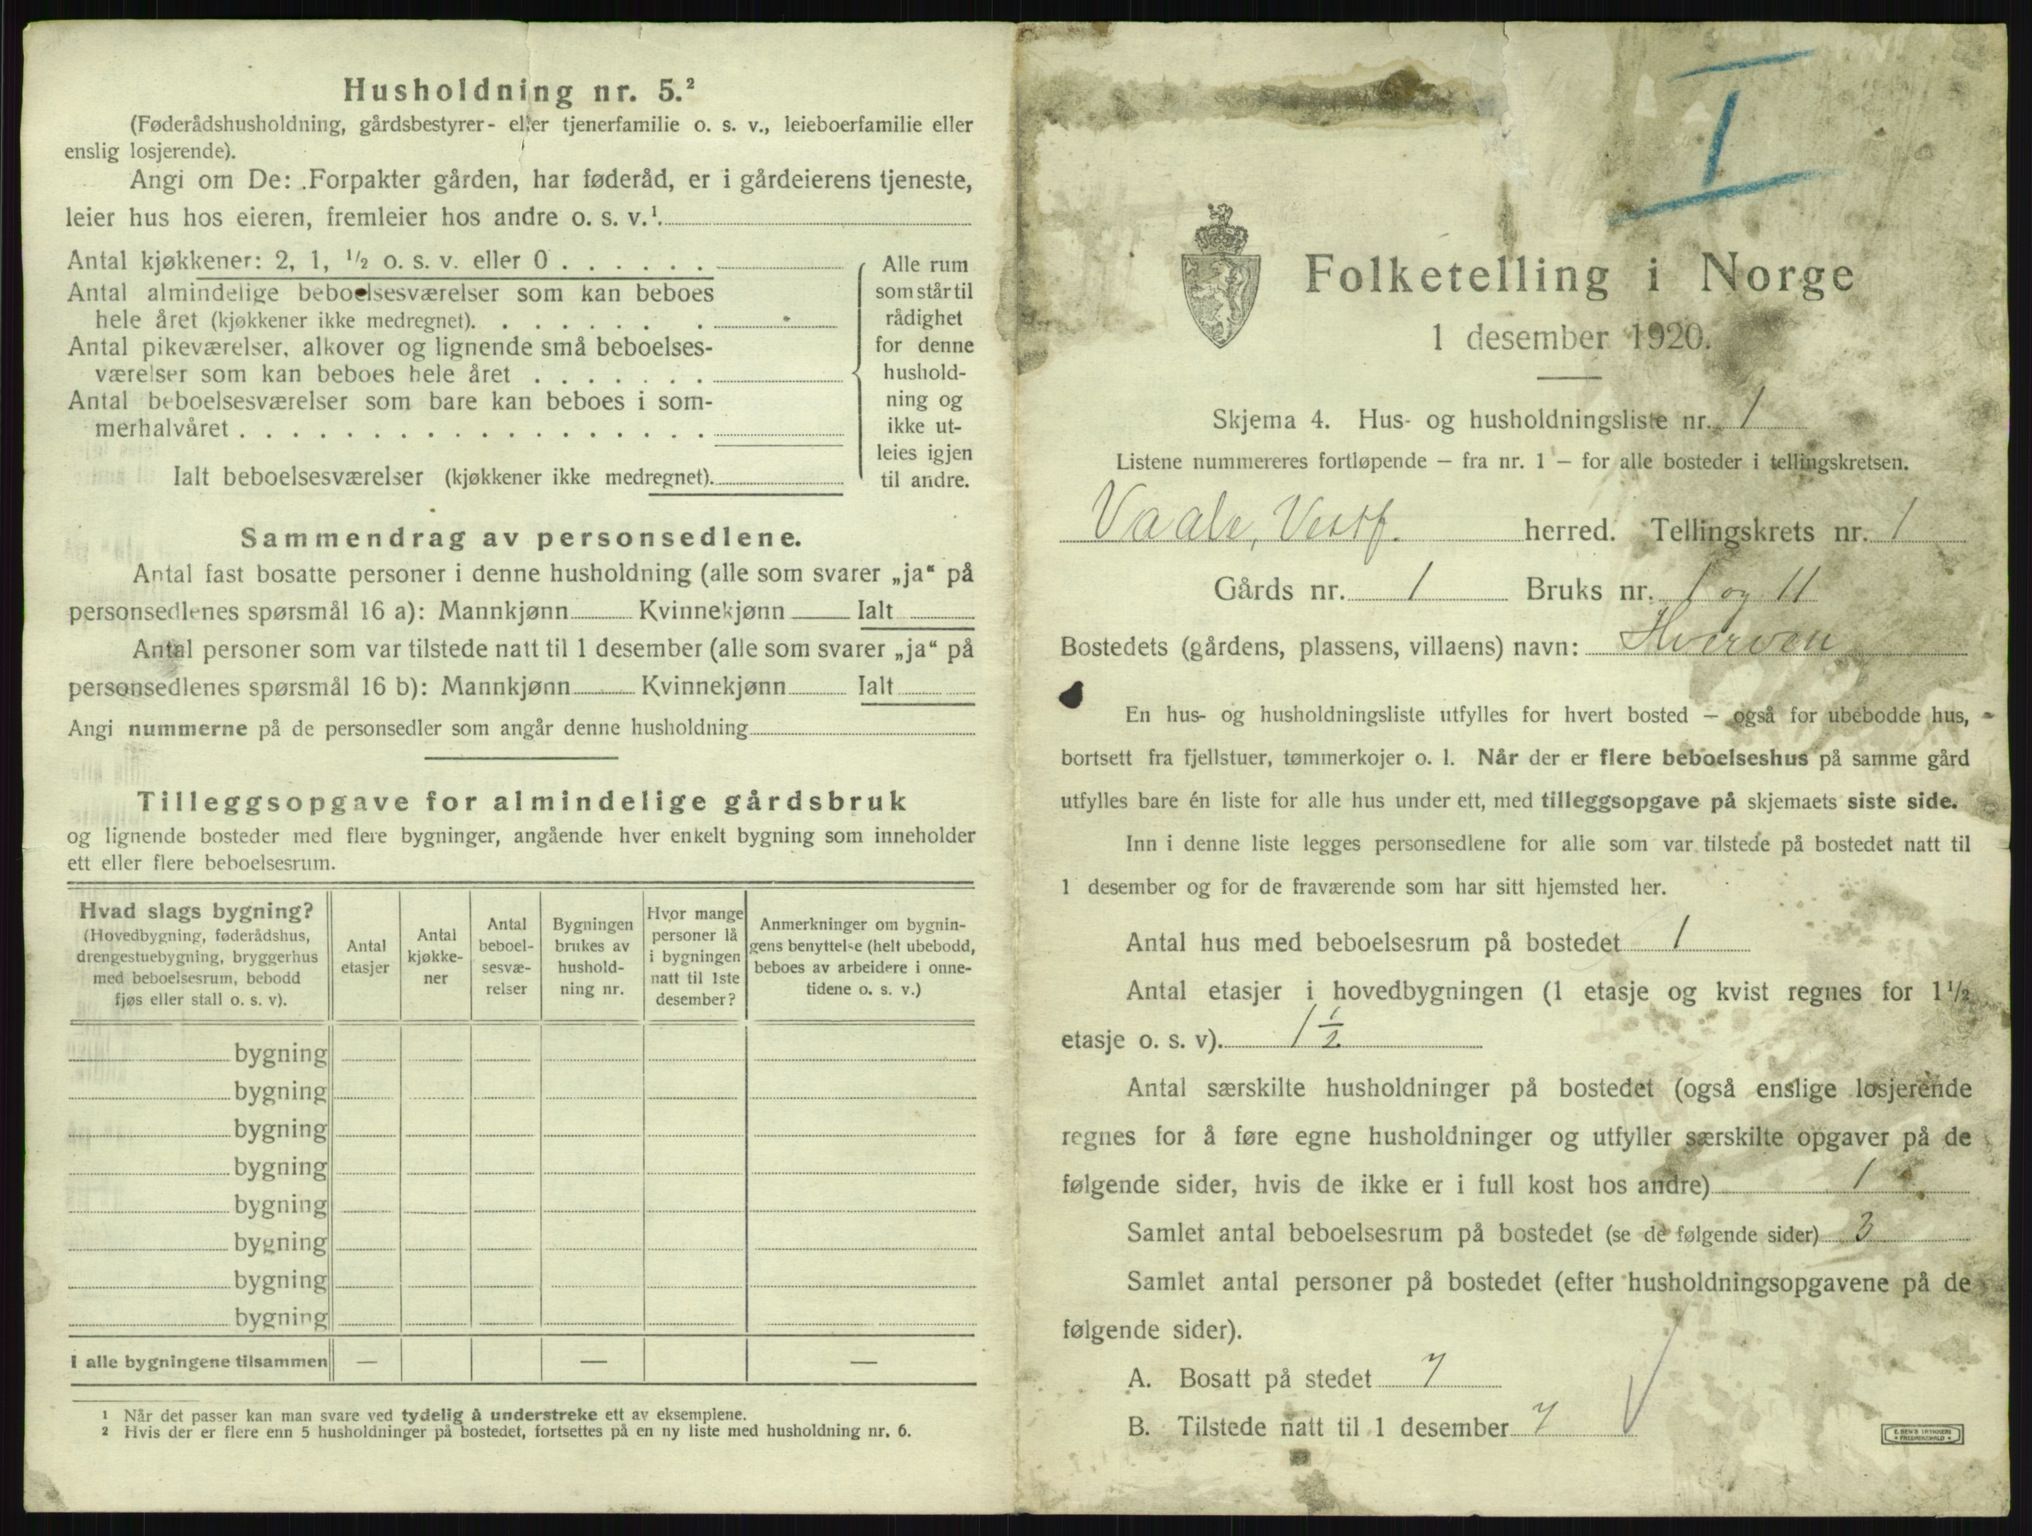 Husholdning nr. 5.²
(Føderådshusholdning, gårdsbestyrer- eller tjenerfamilie o. s. v., leieboerfamilie eller
enslig losjerende).
Angi om De: Forpakter gården, har føderåd, er i gårdeierens tjeneste,
leier hus hos eieren, fremleier hos andre o. s. v.¹
Antal kjøkkener: 2, 1, ½ o. s. v. eller 0 . . . . . .
Antal almindelige beboelsesværelser som kan beboes
hele året (kjøkkener ikke medregnet). . . . . . . .
Antal pikeværelser, alkover og lignende små beboelses-
værelser som kan beboes hele året . . . . . . .
Antal beboelsesværelser som bare kan beboes i som-
merhalvåret . . . . . . . . . . . . . . . . . .
Ialt beboelsesværelser (kjøkkener ikke medregnet).
Alle rum
som står til
rådighet
for denne
hushold-
ning og
ikke ut-
leies igjen
til andre.
Sammendrag av personsedlene.
Antal fast bosatte personer i denne husholdning (alle som svarer „ja“ på
personsedlenes spørsmål 16 a): Mannkjønn Kvinnekjønn Ialt
Antal personer som var tilstede natt til 1 desember (alle som svarer „ja“ på
personsedlenes spørsmål 16 b): Mannkjønn Kvinnekjønn Ialt
Angi nummerne på de personsedler som angår denne husholdning
Tilleggsopgave for almindelige gårdsbruk
og lignende bosteder med flere bygninger, angående hver enkelt bygning som inneholder
ett eller flere beboelsesrum.
Hvad slags bygning?
(Hovedbygning, føderådshus,
drengestuebygning, bryggerhus
med beboelsesrum, bebodd
fjøs eller stall o. s. v).
Antal
etasjer
Antal
kjøkke-
ner
Antal
beboel-
sesvæ-
relser
Bygningen
brukes av
hushold-
ning nr.
Hvor mange
personer lå
i bygningen
natt til 1ste
desember?
Anmerkninger om bygnin-
gens benyttelse (helt ubebodd,
beboes av arbeidere i onne-
tidene o. s. v.)
bygning
bygning
bygning
bygning
bygning
bygning
bygning
bygning
I alle bygningene tilsammen — — —
¹ Når det passer kan man svare ved tydelig å understreke ett av eksemplene.
² Hvis der er flere enn 5 husholdninger på bostedet, fortsettes på en ny liste med husholdning nr. 6.
I
Folketelling i Norge
1 desember 1920.
Skjema 4. Hus- og husholdningsliste nr. 1
Listene nummereres fortløpende – fra nr. 1 – for alle bosteder i tellingskretsen.
Vaale, Vestf. herred. Tellingskrets nr. 1
Gårds nr. 1 Bruks nr. 1 og 11
Bostedets (gårdens, plassens, villaens) navn: Hverven
En hus- og husholdningsliste utfylles for hvert bosted – også for ubebodde hus,
bortsett fra fjellstuer, tømmerkojer o. l. Når der er flere beboelseshus på samme gård
utfylles bare én liste for alle hus under ett, med tilleggsopgave på skjemaets siste side.
Inn i denne liste legges personsedlene for alle som var tilstede på bostedet natt til
1 desember og for de fraværende som har sitt hjemsted her.
Antal hus med beboelsesrum på bostedet 1
Antal etasjer i hovedbygningen (1 etasje og kvist regnes for 1½
etasje o. s. v). 1 ½
Antal særskilte husholdninger på bostedet (også enslige losjerende
regnes for å føre egne husholdninger og utfyller særskilte opgaver på de
følgende sider, hvis de ikke er i full kost hos andre) 1
Samlet antal beboelsesrum på bostedet (se de følgende sider) 3
Samlet antal personer på bostedet (efter husholdningsopgavene på de
følgende sider).
A. Bosatt på stedet 7
B. Tilstede natt til 1 desember 7